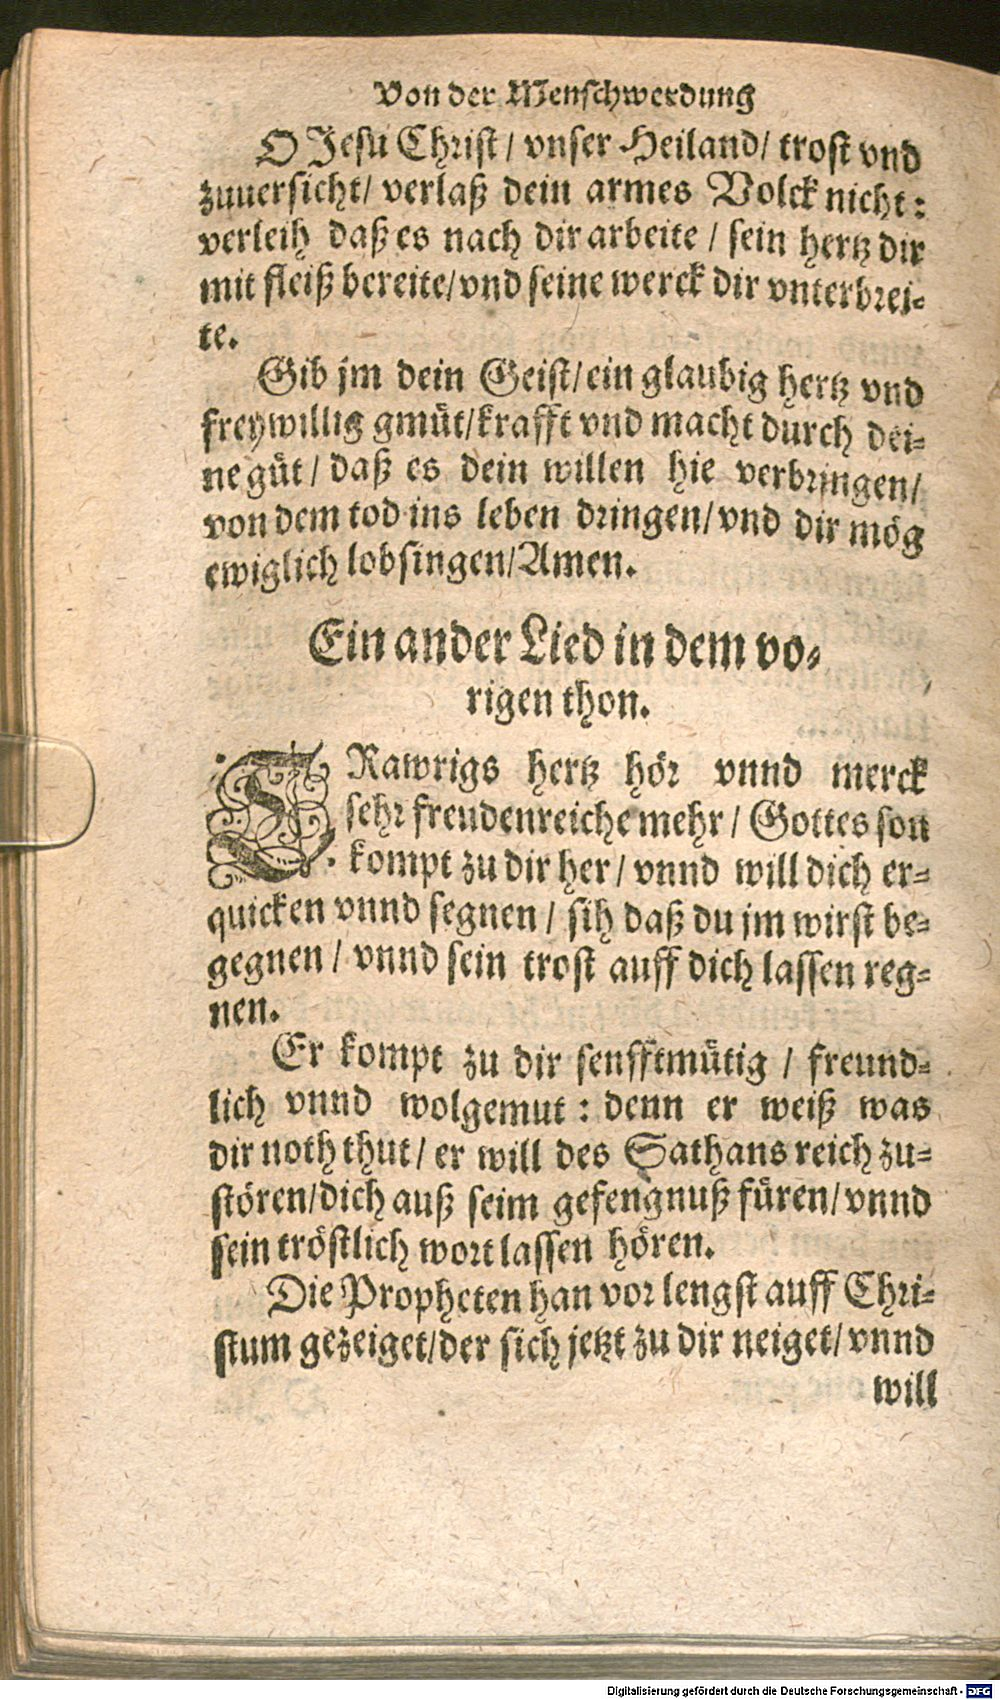 Von der Menschwerdung
O Jesu Christ / vnser Heiland / trost vnd
zuuersicht / verlaß dein armes Volck nicht:
verleih daß es nach dir arbeite / sein hertz dir
mit fleiß bereite / vnd seine werck dir vnterbrei-
te.
Gib jm dein Geist / ein glaubig hertz vnd
freywillig gmüt / krafft vnd macht durch dei-
ne güt / daß es dein willen hie verbringen /
von dem tod ins leben dringen / vnd dir mög
ewiglich lobsingen / Amen.
Ein ander Lied in dem vo-
rigen thon.
TRawrigs hertz hör vnnd merck
sehr freudenreiche mehr / Gottes son
kompt zu dir her / vnnd will dich er-
quicken vnnd segnen / sih daß du jm wirst be-
gegnen / vnnd sein trost auff dich lassen reg-
nen.
Er kompt zu dir senfftmütig / freund-
lich vnnd wolgemut : denn er weiß was
dir noth thut / er will des Sathans reich zu-
stören / dich auß seim gefengnuß füren / vnnd
sein tröstlich wort lassen hören.
Die Propheten han vor lengst auff Chri-
stum gezeiget / der sich jetzt zu dir neiget / vnnd
will
Digitalisierung gefördert durch die Deutsche Forschungsgemeinschaft - DFG